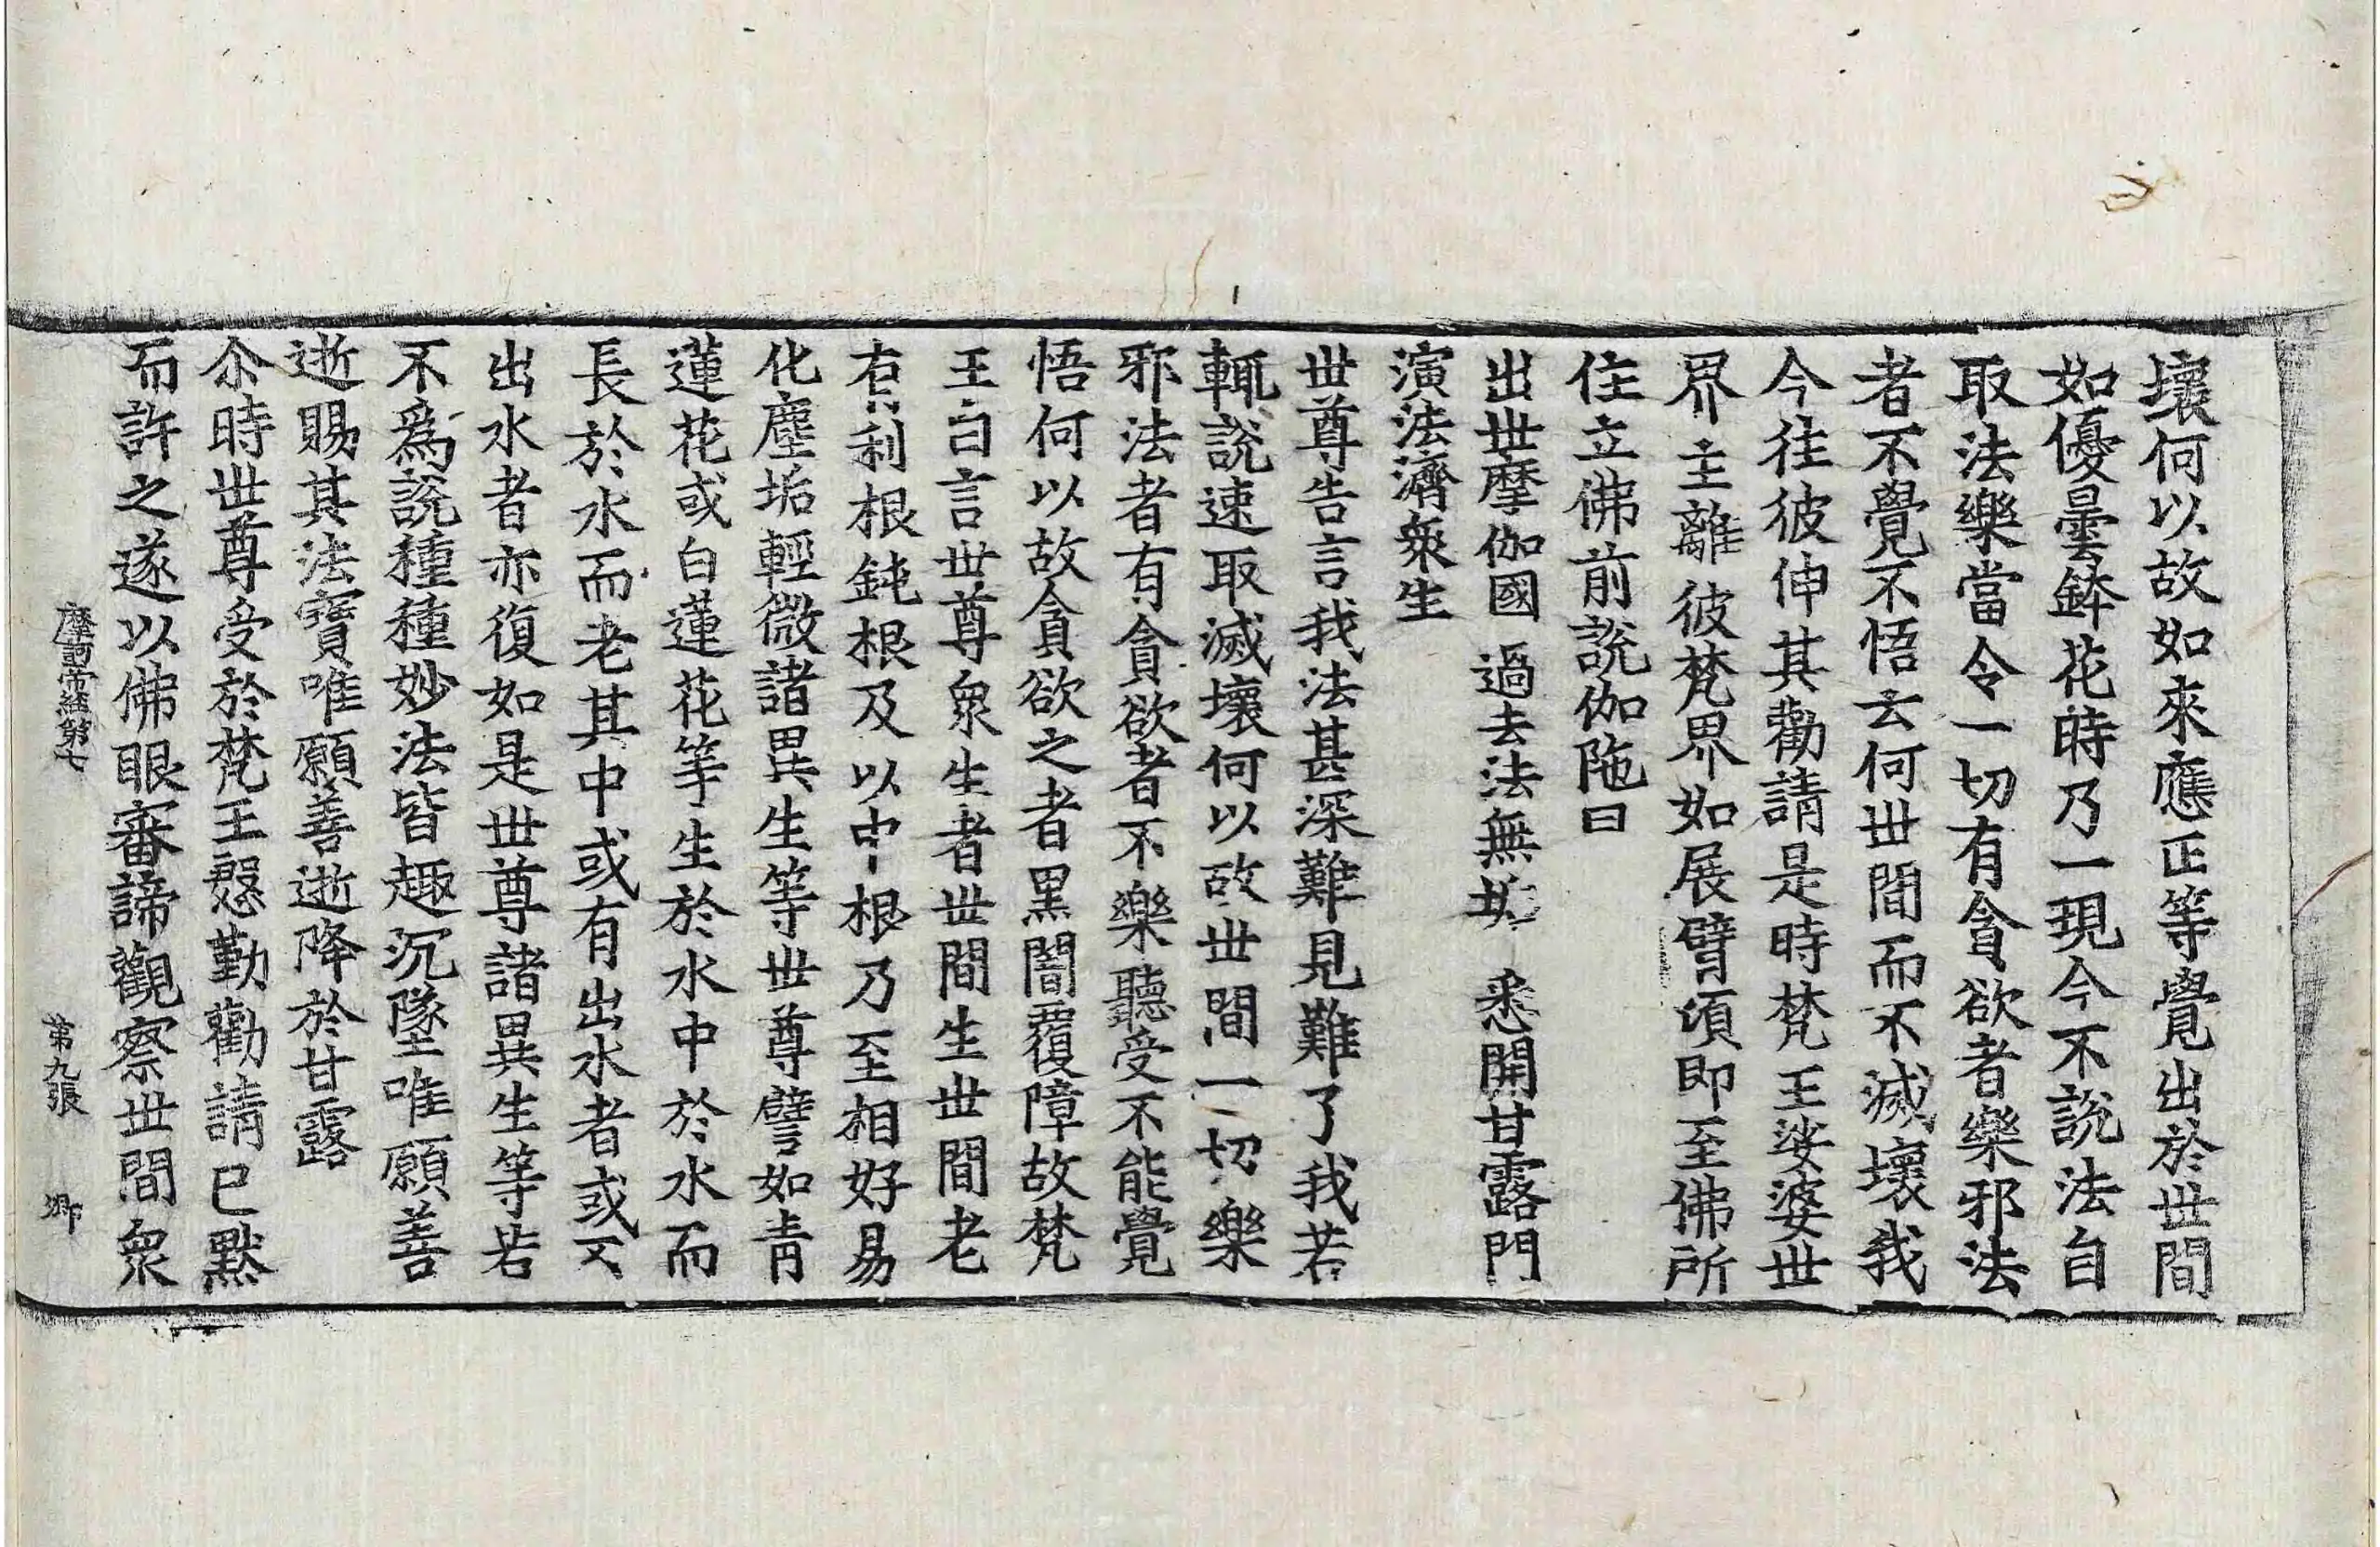 壞何以故如來應正等覺出於世間
如優曇鉢花時乃一現今不說法自
取法樂當令一切有貪欲者樂邪法
者不覺不悟云何世間而不滅壞我
今往彼伸其勸請是時梵王娑婆世
界主離彼梵界如展臂頃即至佛所
住立佛前說伽陁曰
出世摩伽國　過去法無　悉開甘露門
演法濟衆生
世尊告言我法甚深難見難了我若
輒說速取滅壞何以故世間一切樂
邪法者有貪欲者不樂聽受不能覺
悟何以故貪欲之者黑闇覆障故梵
王白言世尊衆生者世間生世間老
有利根鈍根及以中根乃至相好易
化塵垢輕微諸異生等世尊譬如青
蓮花或白蓮花等生於水中於水而
長於水而老其中或有出水者或不
出水者亦復如是世尊諸異生等若
不爲說種種妙法皆趣沉墜唯願善
逝賜其法寶唯願善逝降於甘露
尒時世尊受於梵王慇勤勸請已默
而許之遂以佛眼審諦觀察世間衆
摩訶帝經第七　第九張　鄉